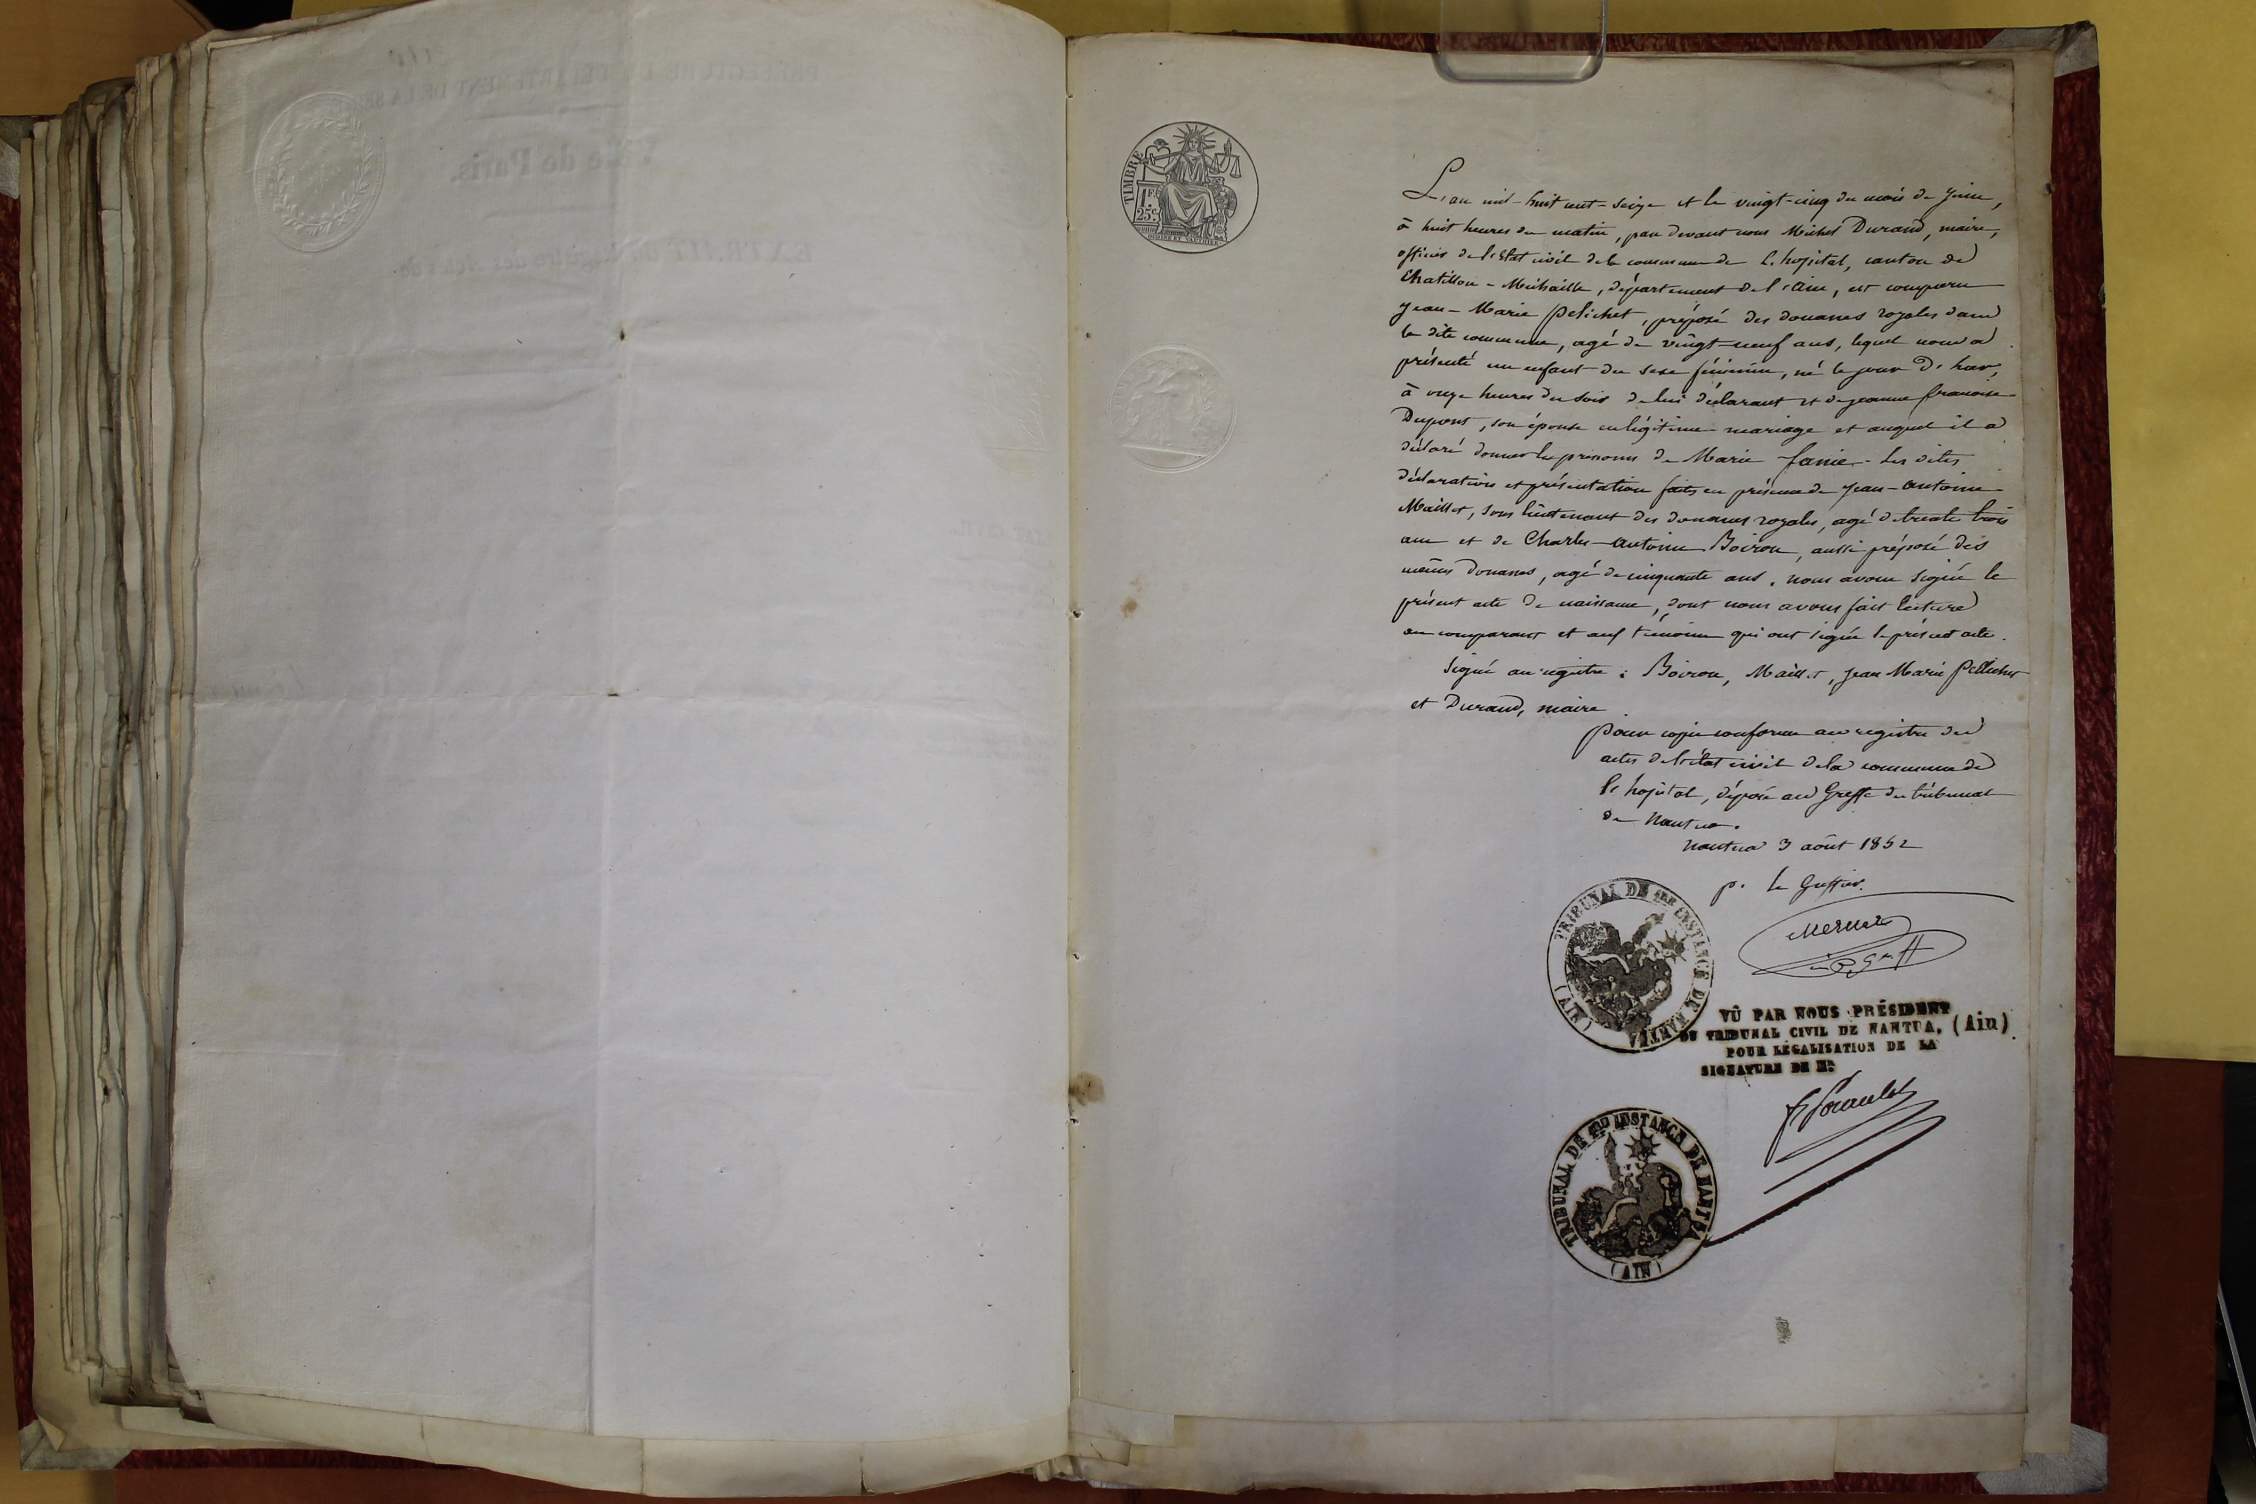 TIMBRE
1 Fr.
25 c.
L'an mil-huit cent-seize et le vingt-cinq du mois de Juin,
à huit heures du matin, par devant nous Michel Durand, maire,
officier de l'état civil de la commune de l'hopital, canton de
Chatillon-Michaille, département de l'Ain, est comparu
Jean-Marie Pelichet, préposé des douanes royales dans
la dite commune, agé de vingt-neuf ans, lequel nous a
présenté un enfant du sexe féminin, né le jour d'hier,
à onze heures du soir de lui déclarant et de jeanne françoise
Dupont, son épouse en légitime mariage et auquel il a
déclaré donner les prénoms de Marie fanie. Les dites
déclaration et présentation faites en présence de Jean-Antoine
Maillet, sous lieutenant des douanes royales, agé de trente trois
ans et de Charles-Antoine Boiron, aussi préposé des
mêmes Douanes, agé de cinquante ans. nous avons signé le
présent acte de naissance, dont nous avons fait lecture
au comparant et aux témoins qui ont signé le présent acte.
Signé au registre : Boiron, Maillet, Jean Marie Pellichet
et Durand, maire
Pour copie conforme au registre des
actes de l'état civil de la commune de
l'hopital, déposé au Greffe du tribunal
de Nantua.
Nantua 3 août 1852
p. le Greffier.
TRIBUNAL DE 1ERE INSTANCE DE NANTUA
(AIN)
VÛ PAR NOUS PRÉSIDENT
DU TRIBUNAL CIVIL DE NANTUA, (Ain)
POUR LÉGALISATION DE LA
SIGNATURE DE MR
TRIBUNAL DE 1ERE INSTANCE DE NANTUA
(AIN)